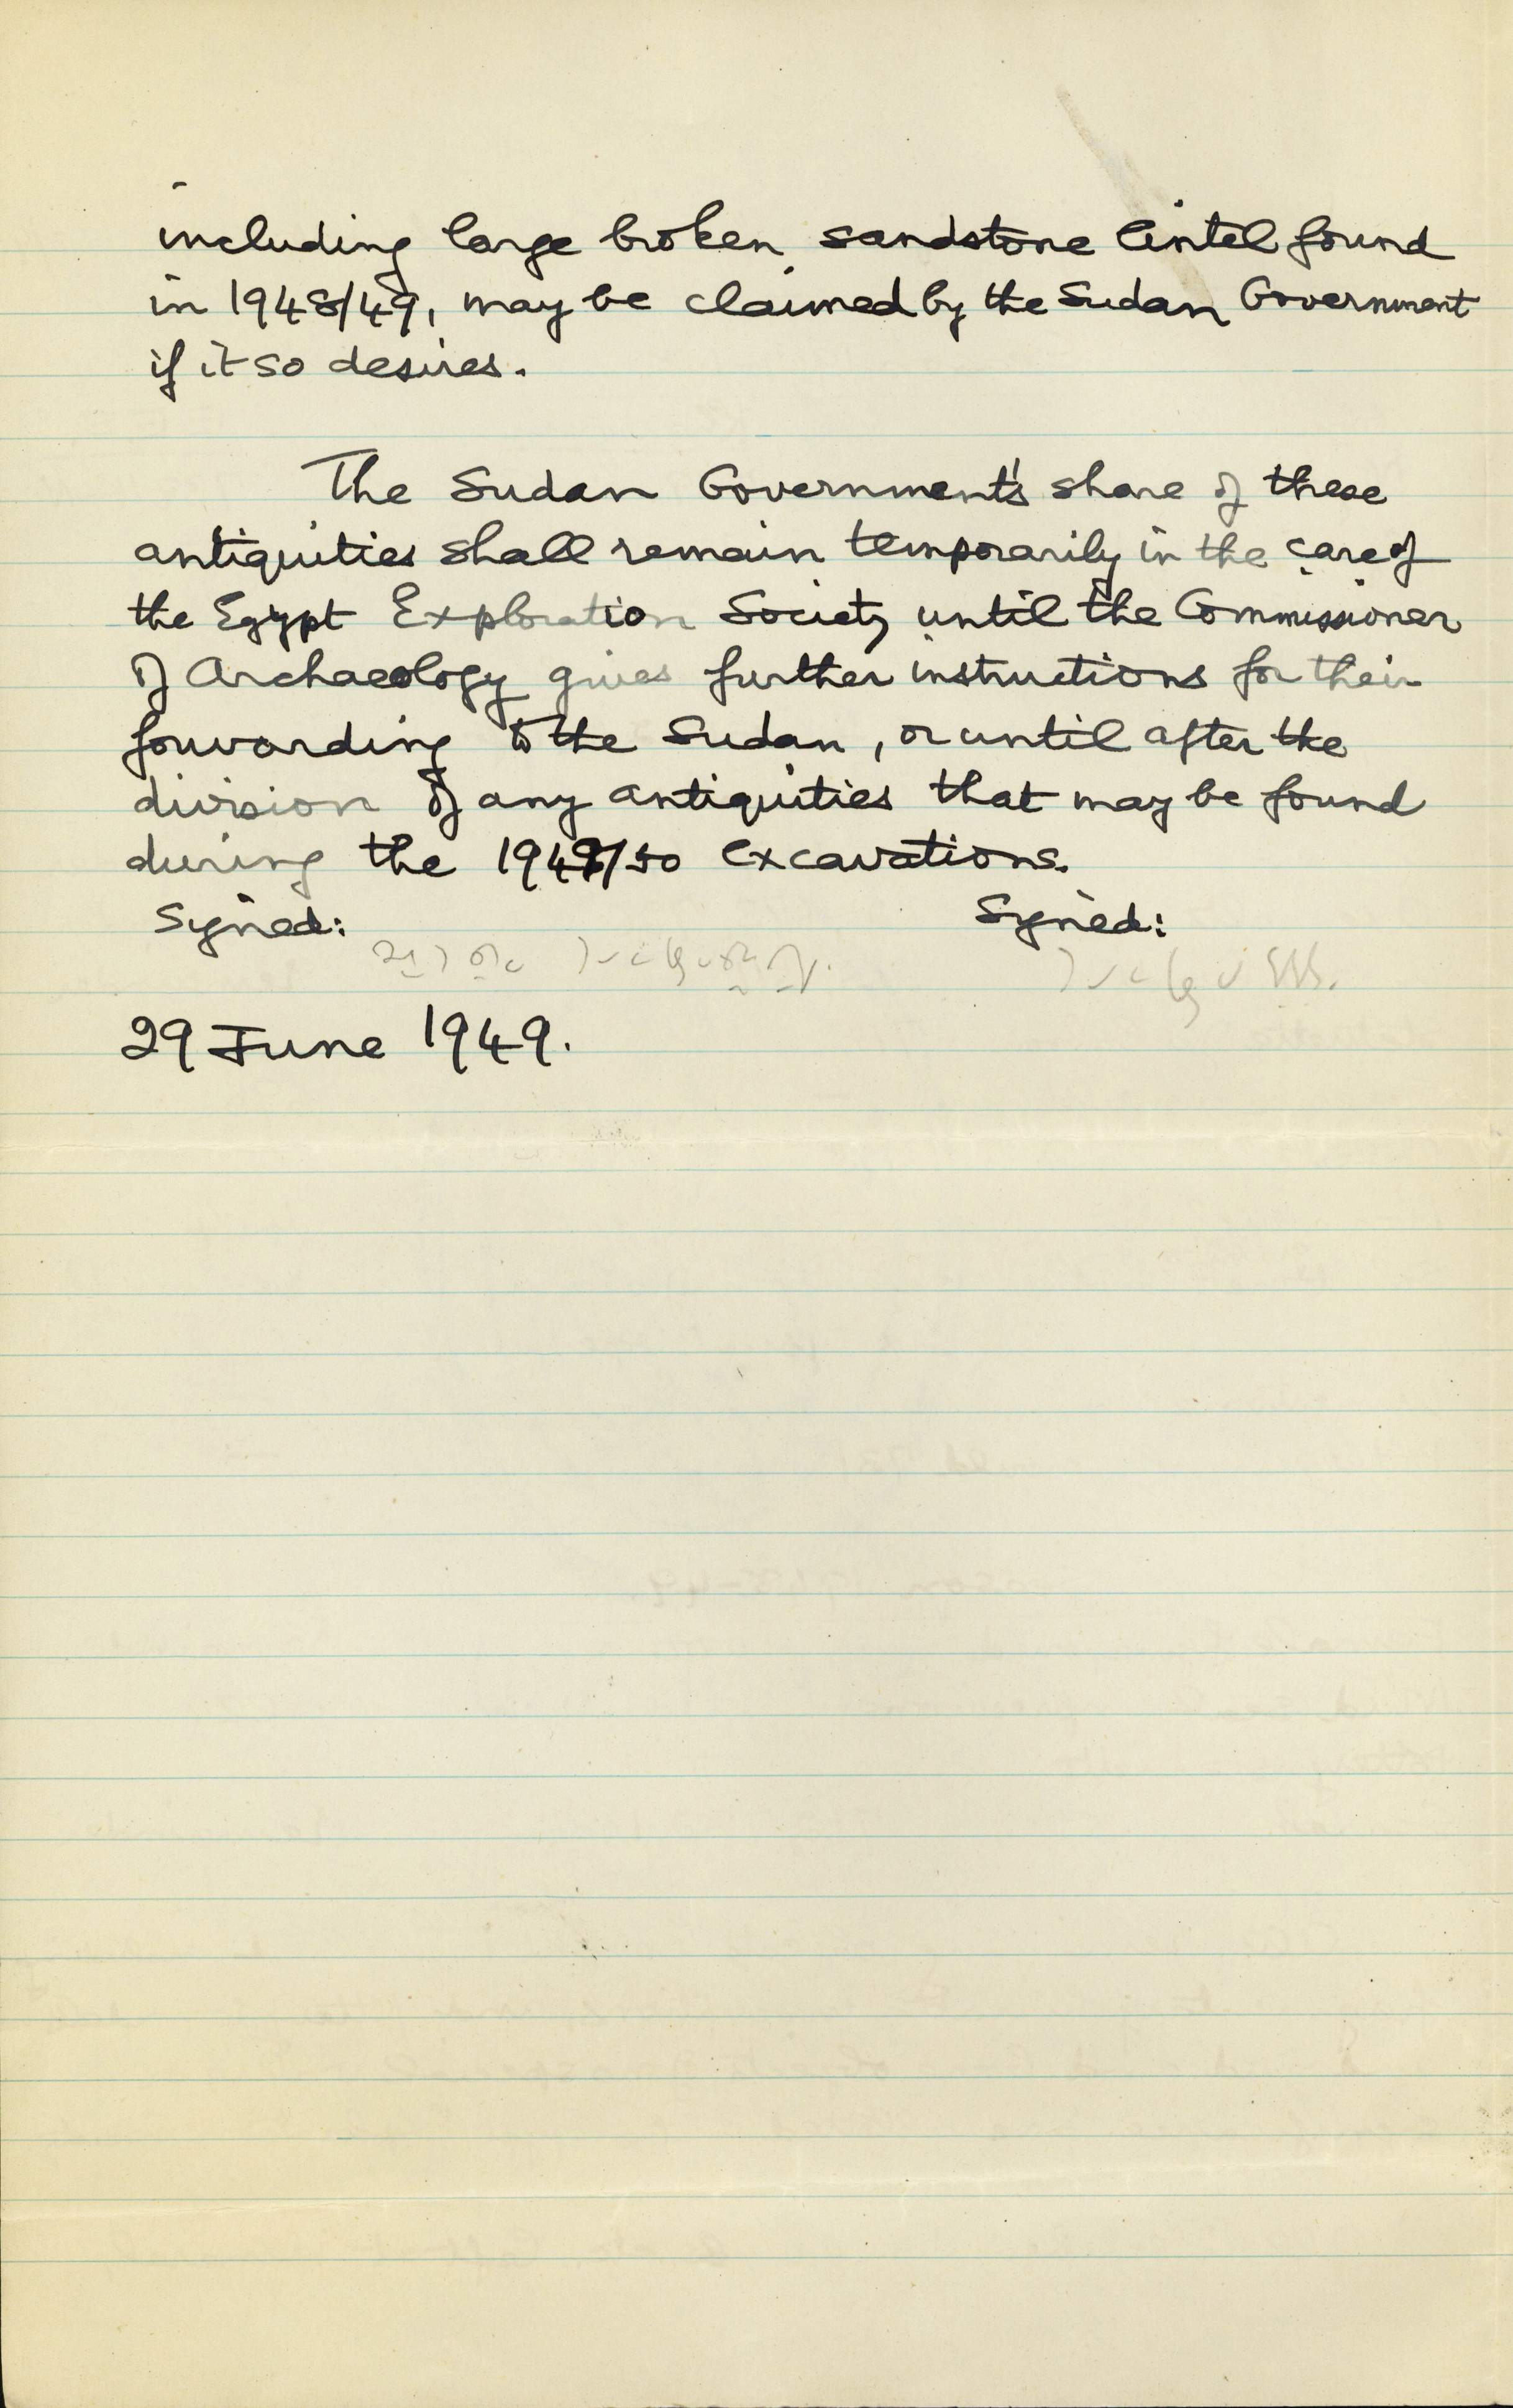 including large broken sandstone lintel found
in 1948/49, may be claimed by the Sudan Government
if it so desires.
The Sudan Government's share of these
antiquities shall remain temporarily in the care of
the Egypt Exploration Society until the Commissioner
of Archaeology gives further instructions for their
forwarding to the Sudan, or until after the
division of any antiquities that may be found
during the 1949/50 excavations.
Signed: Signed:
29 June 1949.